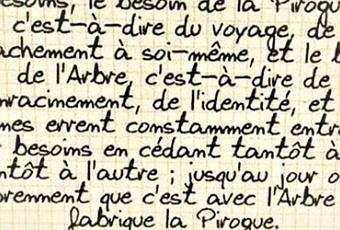 esoins, le besoin de la Pirogu
c'est-à-dire du voyage, de
achement à soi-même, et le b
de l'Arbre, c'est-à-dire de
nracinement, de l'identité, et
mes errent constamment entr
besoins en cédant tantôt à
ntôt à l'autre ; jusqu'au jour o
prennent que c'est avec l'Arbre
fabrique la Pirogue.